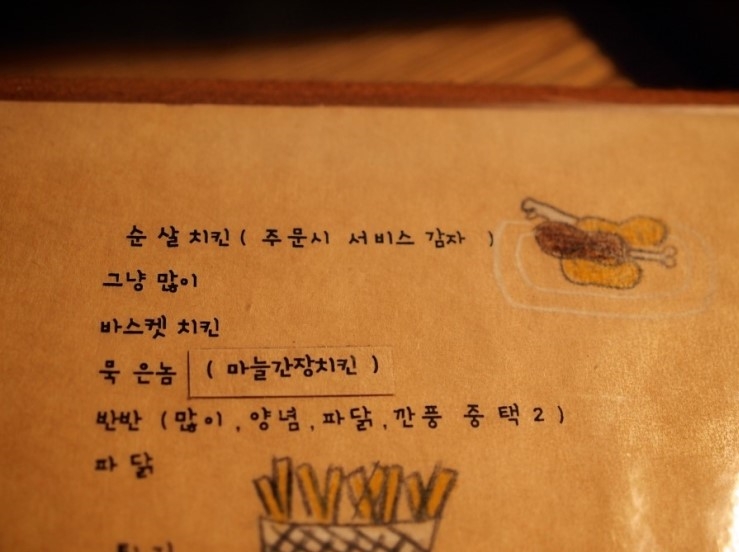 순살치킨 ( 주문시 서비스 감자 )
그냥 많이
바스켓 치킨
묵은놈 ( 마늘간장치킨 )
반반 (많이, 양념, 파닭, 깐풍 중 택 2)
파닭